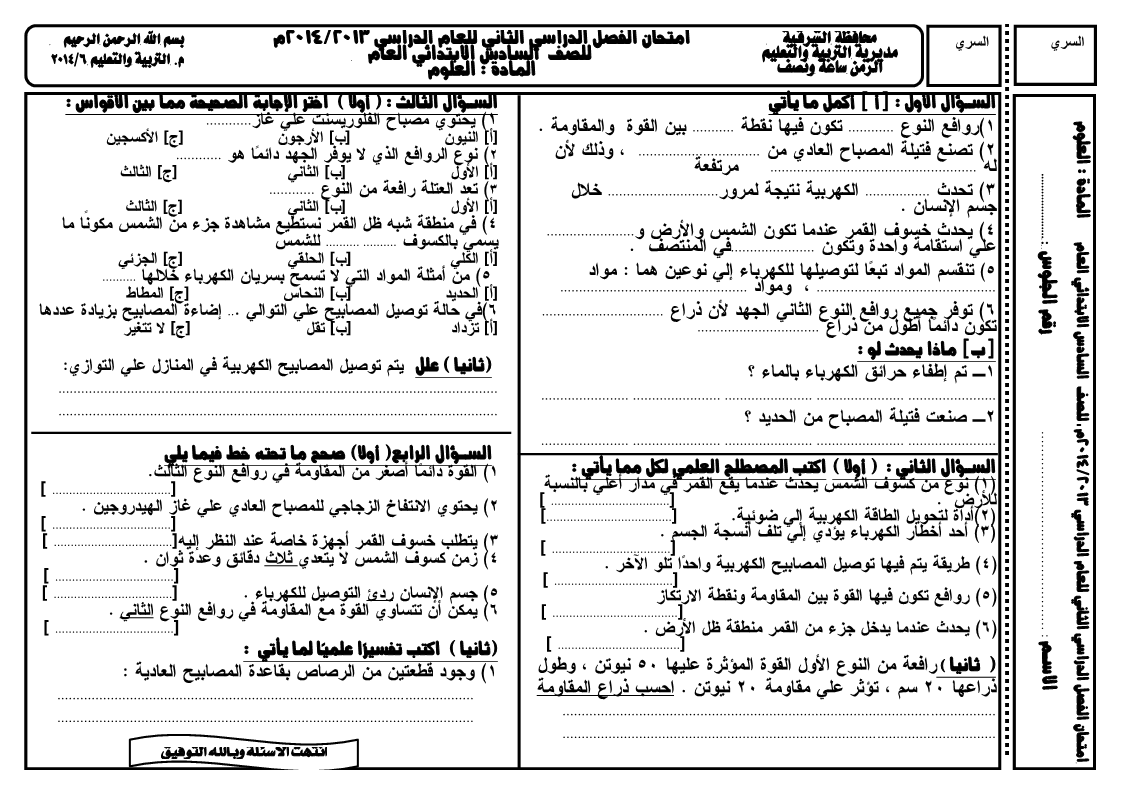 السري
السري
محافظة الشرقية
مديرية التربية والتعليم
الزمن ساعة ونصف
امتحان الفصل الدراسي الثاني للعام الدراسي ٢٠١٤/٢٠١٣م
للصف السادس الابتدائي العام
المادة : العلوم
بسم الله الرحمن الرحيم
م. التربية والتعليم ٢٠١٤/٦
المادة : العلوم
امتحان الفصل الدراسي الثاني للعام الدراسي ٢٠١٤/٢٠١٣م، للصف السادس الابتدائي العام
رقم الجلوس : ....................
الاسم ........................................
السـؤال الأول : [ أ ] أكمل ما يأتي
١)روافع النوع ........... تكون فيها نقطة ........... بين القوة والمقاومة .
٢) تصنع فتيلة المصباح العادي من .......................... ، وذلك لأن
له .......................................... مرتفعة
٣) تحدث ................ الكهربية نتيجة لمرور............................ خلال
جسم الإنسان .
٤) يحدث خسوف القمر عندما تكون الشمس والأرض و......................
علي استقامة واحدة وتكون .....................في المنتصف .
٥) تنقسم المواد تبعًا لتوصيلها للكهرباء إلي نوعين هما : مواد
............................................. ، ومواد .............................................
٦) توفر جميع روافع النوع الثاني الجهد لأن ذراع ..............................
تكون دائمًا أطول من ذراع ..............................
[ب] ماذا يحدث لو :
١ــ تم إطفاء حرائق الكهرباء بالماء ؟
............................................................................................................
٢ــ صنعت فتيلة المصباح من الحديد ؟
............................................................................................................
السـؤال الثاني : ( أولا ) اكتب المصطلح العلمي لكل مما يأتي :
(١) نوع من كسوف الشمس يحدث عندما يقع القمر في مدار أعلي بالنسبة
للأرض . [..............................]
(٢)أداة لتحويل الطاقة الكهربية إلي ضوئية. [..............................]
(٣) أحد أخطار الكهرباء يؤدي إلي تلف أنسجة الجسم .
[ ..............................]
(٤) طريقة يتم فيها توصيل المصابيح الكهربية واحدًا تلو الآخر .
[ ..............................]
(٥) روافع تكون فيها القوة بين المقاومة ونقطة الارتكاز
[ ..............................]
(٦) يحدث عندما يدخل جزء من القمر منطقة ظل الأرض .
[ ..............................]
( ثانيا) رافعة من النوع الأول القوة المؤثرة عليها ٥٠ نيوتن ، وطول
ذراعها ٢٠ سم ، تؤثر علي مقاومة ٢٠ نيوتن . احسب ذراع المقاومة
............................................................................................................
............................................................................................................
السـؤال الثالث : ( أولا ) اختر الإجابة الصحيحة مما بين الأقواس :
١) يحتوي مصباح الفلوريسنت علي غاز............
[أ] النيون [ب] الأرجون [ج] الأكسجين
٢) نوع الروافع الذي لا يوفر الجهد دائمًا هو ............
[أ] الأول [ب] الثاني [ج] الثالث
٣) تعد العتلة رافعة من النوع ............
[أ] الأول [ب] الثاني [ج] الثالث
٤) في منطقة شبه ظل القمر نستطيع مشاهدة جزء من الشمس مكونًا ما
يسمي بالكسوف ......... ......... للشمس
[أ] الكلي [ب] الحلقي [ج] الجزئي
٥) من أمثلة المواد التي لا تسمح بسريان الكهرباء خلالها .........
[أ] الحديد [ب] النحاس [ج] المطاط
٦)في حالة توصيل المصابيح علي التوالي ... إضاءة المصابيح بزيادة عددها
[أ] تزداد [ب] تقل [ج] لا تتغير
(ثانيا ) علل يتم توصيل المصابيح الكهربية في المنازل علي التوازي:
............................................................................................................
............................................................................................................
السـؤال الرابع( أولا) صحح ما تحته خط فيما يلي
١) القوة دائمًا أصغر من المقاومة في روافع النوع الثالث.
[ ..............................]
٢) يحتوي الانتفاخ الزجاجي للمصباح العادي علي غاز الهيدروجين .
[ ..............................]
٣) يتطلب خسوف القمر أجهزة خاصة عند النظر إليه[ ..............................]
٤) زمن كسوف الشمس لا يتعدي ثلاث دقائق وعدة ثوان .
[ ..............................]
٥) جسم الإنسان ردئ التوصيل للكهرباء . [ ..............................]
٦) يمكن أن تتساوي القوة مع المقاومة في روافع النوع الثاني .
[ ..............................]
(ثانيا ) اكتب تفسيرًا علميًا لما يأتي :
١) وجود قطعتين من الرصاص بقاعدة المصابيح العادية :
............................................................................................................
............................................................................................................
انتهت الاسئلة وبالله التوفيق